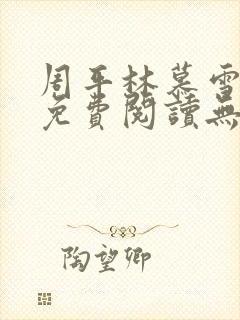 周平林慕雪
免費閱讀無
陶望卿